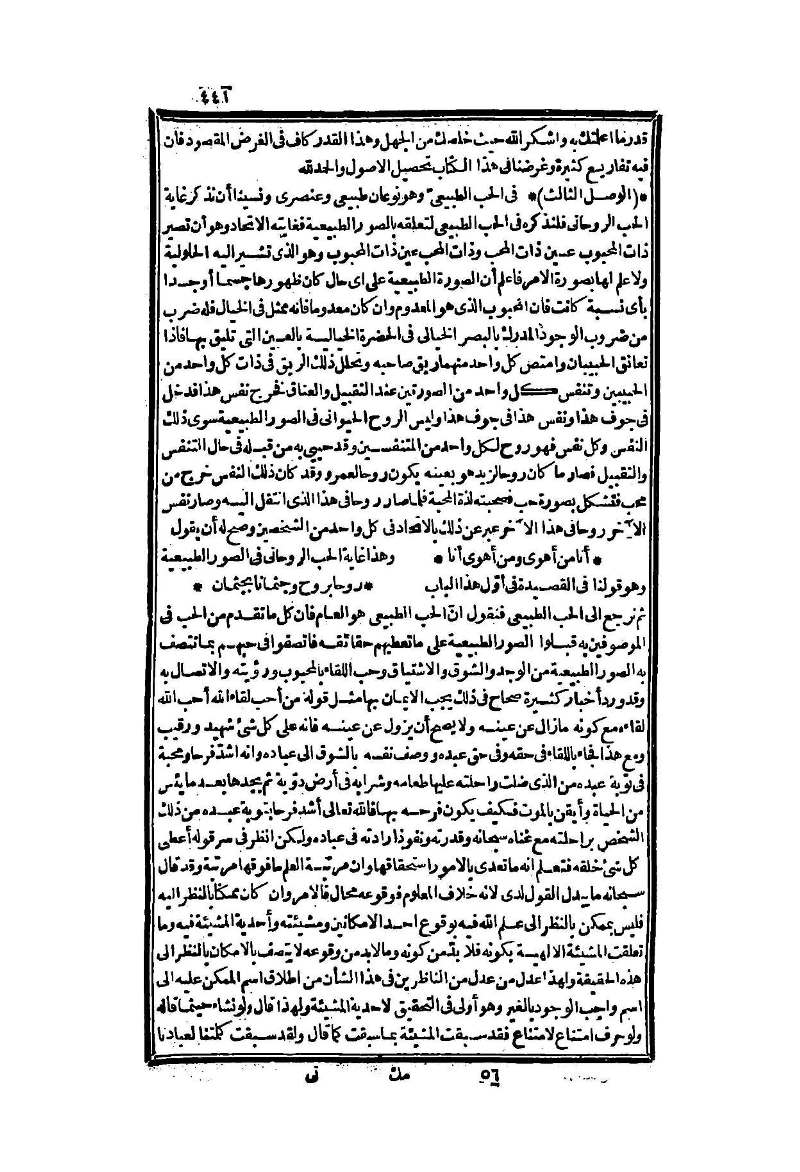 ٤٤١
قدر ما اعلمتك به واشكر الله حيث خلصك من الجهل وهذا القدر كاف فى الغرض المقصود فان
فيه تفاريع كثيرة وغرضنا فى هذا الكتاب تحصيل الاصول والحد لله
*(الوصل الثالث)* فى الحب الطبيعى وهو نوعان طبيعى وعنصرى ونسينا أن نذكر غاية
الحب الروحانى فلنذكره فى الحب الطبيعى لتعلقه بالصور الطبيعية فغايته الاتحاد وهو أن تصير
ذات المحبوب عين ذات المحب وذات المحب عين ذات المحبوب وهو الذى تشير اليه الحلولية
ولا علم لها بصورة الامر فاعلم أن الصورة الطبيعية على اى حال كان ظهورها جسما أو جسدا
بأى نسبة كانت فان المحبوب الذى هو المعدوم وان كان معدوما فانه ممثل فى الخيال فله ضرب
من ضروب الوجود المدرك بالبصر الخيالى فى الحضرة الخيالية بالعين التى تليق بها فاذا
تعانق الحبيبان وامتص كل واحد منهما ريق صاحبه وتحلل ذلك الريق فى ذات كل واحد من
الحبيبين وتنفس كل واحد من الصورتين عند التقبيل والعناق فخرج نفس هذا فدخل
فى جوف هذا ونفس هذا فى جوف هذا وليس الروح الحيوانى فى الصور الطبيعية سوى ذلك
النفس وكل نفس فهو روح لكل واحد من المتنفسين وقد حيى به من قبله فى حال التنفس
والتقبيل فصار ما كان روحا لزيد هو بعينه يكون روحا لعمرو وقد كان ذلك النفس خرج من
محب فتشكل بصورة حب فصحبته لذة المحبة فلما صار روحا فى هذا الذى انتقل اليسه وصار نفس
الآخر روحا فى هذا الآخر عبر عن ذلك بالاتحاد فى كل واحد من الشخصين وصح له أن يقول
* أنا من أهوى ومن أهوى أنا * وهذا غاية الحب الروحانى فى الصور الطبيعية
وهو قولنا فى القصيدة فى أول هذا الباب * روحا بروح وجثمانا بجثمان *
ثم نرجع الى الحب الطبيعى فنقول ان الحب الطبيعى هو العام فان كل ما تقدم من الحب فى
الموصوفين به قبلوا الصور الطبيعية على ما تعطيهم حقائقه فاتصفوا فى حبهم بما تتصف
به الصور الطبيعية من الوجد والشوق والاشتياق وحب اللقاء بالمحبوب ورؤيته والاتصال به
وقد ورد أخبار كثيرة صحاح فى ذلك يجب الايمان بها مثل قوله من أحب لقاء الله أحب الله
لقاءه مع كونه مازال عن عينه ولا يصح أن يزول عن عينه فانه على كل شئ شهيد ورقيب
ومع هذا فجاء باللقاء فى حقه وفى حق عبده ووصف نفسه بالشوق الى عباده وانه اشد فرحا ومحبة
فى توبة عبده من الذى ضلت راحلته عليها طعامه وشرابه فى أرض دوية ثم يجدها بعد ما يئس
من الحياة وأيقن بالموت فكيف يكون فرحه بها فالله تعالى أشد فرحا بتوبة عبده من ذلك
الشخص براحلته مع غناه سبحانه وقدرته ونفوذ ارادته فى عباده ولكن انظر فى سر قوله أعطى
كل شئ خلقه فتعلم انه ما تعدى بالامور استحقاقها وان مرتبة العلم ما فوقها مرتبة وقد قال
سبحانه ما يبدل القول لدى لانه خلاف المعلوم فوقوعه محال فالامر وان كان ممكنا بالنظر اليه
فليس بممكن بالنظر الى علم الله فيه بوقوع احد الامكانين ومشيئته وأحدية المشيئة فيه وما
تعلقت المشيئة الالهية بكونه فلا بد من كونه وما لابد من وقوعه لا يتصف بالامكان بالنظر الى
هذه الحقيقة ولهذا عدل من عدل من الناظرين فى هذا الشأن من اطلاق اسم الممكن عليه الى
اسم واجب الوجود بالغير وهو أولى فى التحقيق لاحدية المشيئة ولهذا قال ولو نشاء حيثما قاله
ولو حرف امتناع لامتناع فقد سبقت المشيئة بما سبقت كما قال ولقد سبقت كلمتنا لعبادنا
٥٦ مك نى